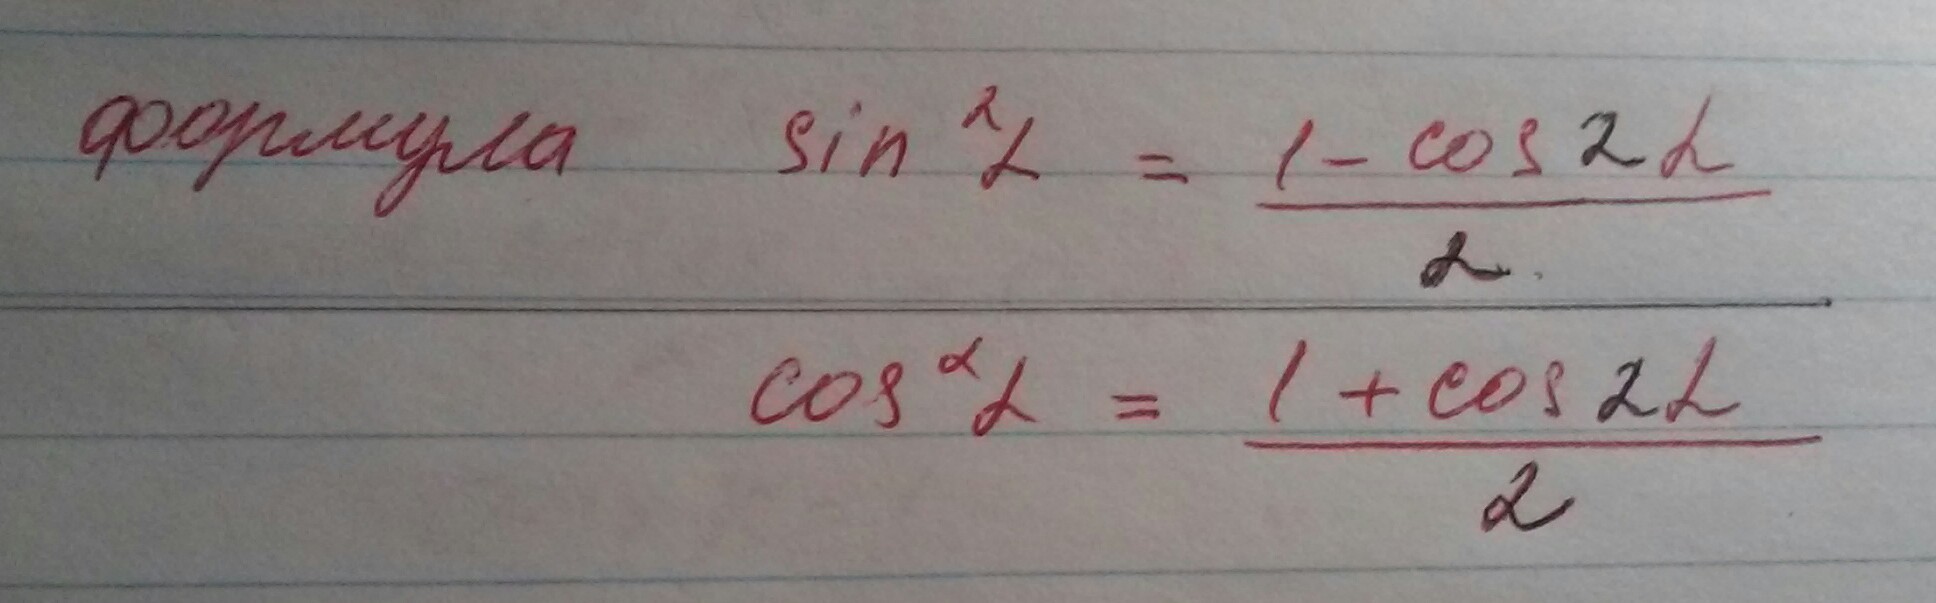 формула sin²α = (1 - cos 2α)/2
cos²α = (1 + cos 2α)/2